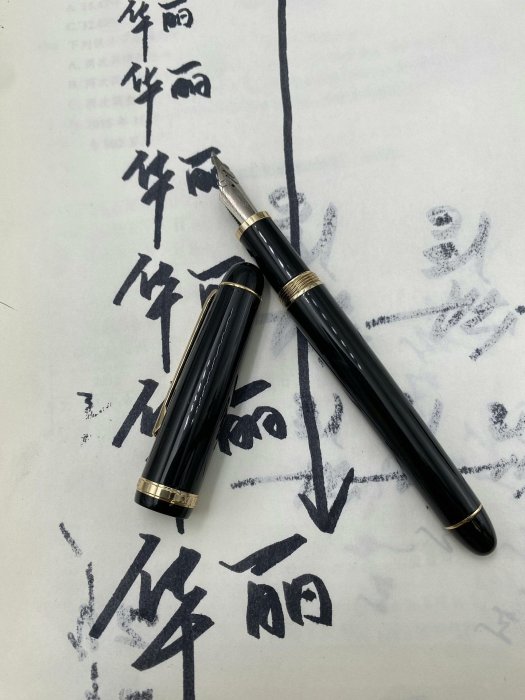 华丽
华丽
华丽
华丽
华丽
华丽